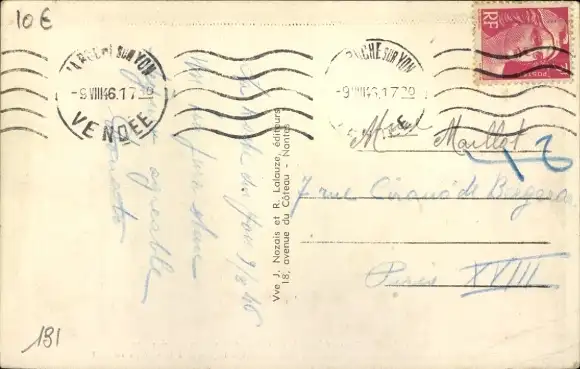 10 €
LA ROCHE SUR YON
-9 VIII 46.17 30
VENDÉE
ROCHE SUR YON
-9 VIII 46.17 30
ÉE
RF
POSTES
La Roche sur Yon 9/8/46
agréable
Vve J. Nozais et R. Lalauze, éditeurs
18, avenue du Côteau - Nantes
Maillot
7 rue Cirano de Bergerac
Paris XVIII
191